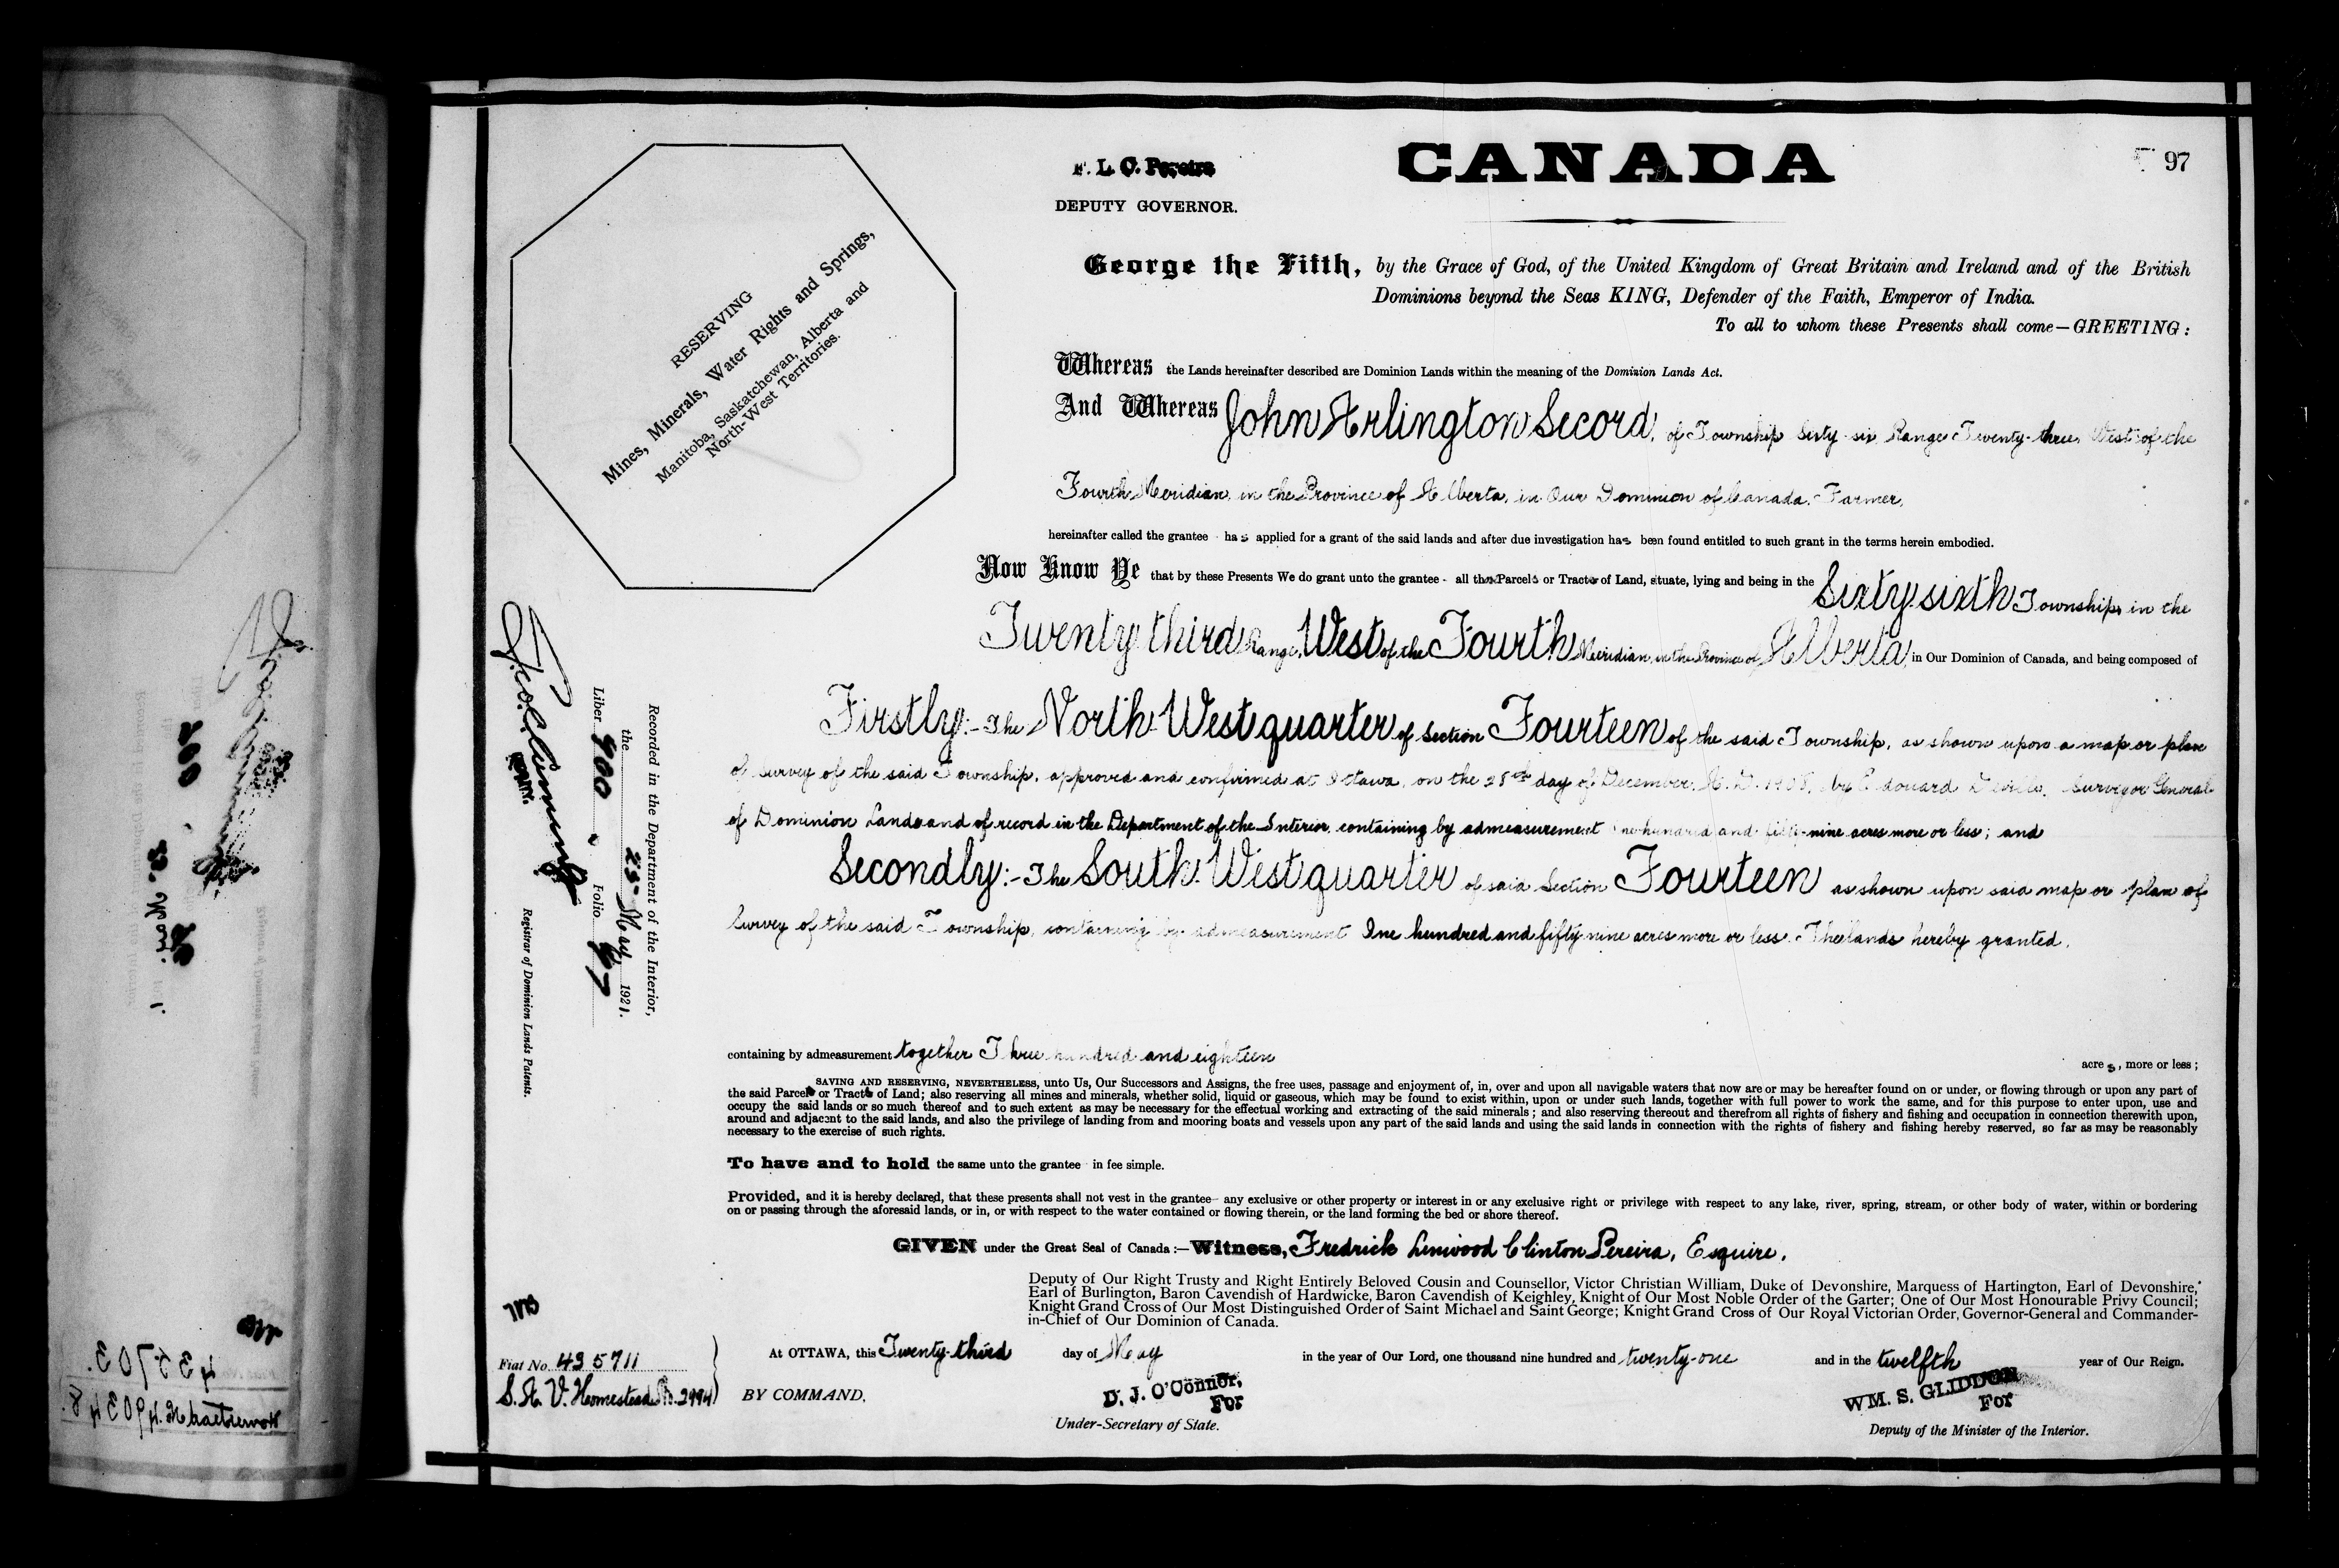 CANADA
97
F. L. C. Pereira
DEPUTY GOVERNOR.
RESERVING
Mines, Minerals, Water Rights and Springs,
Manitoba, Saskatchewan, Alberta and
North-West Territories.
George the Fifth, by the Grace of God, of the United Kingdom of Great Britain and Ireland and of the British
Dominions beyond the Seas KING, Defender of the Faith, Emperor of India.
To all to whom these Presents shall come—GREETING:
Whereas the Lands hereinafter described are Dominion Lands within the meaning of the Dominion Lands Act.
And Whereas John Arlington Secord, of Township Sixty-six, Range Twenty-three, West of the
Fourth Meridian, in the Province of Alberta, in Our Dominion of Canada, Farmer,
hereinafter called the grantee - has applied for a grant of the said lands and after due investigation has been found entitled to such grant in the terms herein embodied.
Now Know Ye that by these Presents We do grant unto the grantee - all those Parcels or Tracts of Land, situate, lying and being in the Sixty-sixth Township, in the
Twenty-third Range, West of the Fourth Meridian, in the Province of Alberta, in Our Dominion of Canada, and being composed of
Firstly:-The North-West quarter of Section Fourteen of the said Township, as shown upon a map or plan
of Survey of the said Township, approved and confirmed at Ottawa, on the 28th day of December, A.D. 1908, by Edouard Deville, Surveyor General
of Dominion Lands and of record in the Department of the Interior, containing by admeasurement One hundred and fifty-nine acres more or less; and
Secondly:-The South-West quarter of said Section Fourteen as shown upon said map or plan of
Survey of the said Township, containing by admeasurement One hundred and fifty nine acres more or less. The lands hereby granted,
containing by admeasurement together Three hundred and eighteen acres, more or less;
SAVING AND RESERVING, NEVERTHELESS, unto Us, Our Successors and Assigns, the free uses, passage and enjoyment of, in, over and upon all navigable waters that now are or may be hereafter found on or under, or flowing through or upon any part of
the said Parcels or Tracts of Land; also reserving all mines and minerals, whether solid, liquid or gaseous, which may be found to exist within, upon or under such lands, together with full power to work the same, and for this purpose to enter upon, use and
occupy the said lands or so much thereof and to such extent as may be necessary for the effectual working and extracting of the said minerals; and also reserving thereout and therefrom all rights of fishery and fishing and occupation in connection therewith upon,
around and adjacent to the said lands, and also the privilege of landing from and mooring boats and vessels upon any part of the said lands and using the said lands in connection with the rights of fishery and fishing hereby reserved, so far as may be reasonably
necessary to the exercise of such rights.
To have and to hold the same unto the grantee in fee simple.
Provided, and it is hereby declared, that these presents shall not vest in the grantee any exclusive or other property or interest in or any exclusive right or privilege with respect to any lake, river, spring, stream, or other body of water, within or bordering
on or passing through the aforesaid lands, or in, or with respect to the water contained or flowing therein, or the land forming the bed or shore thereof.
GIVEN under the Great Seal of Canada:—Witness, Fredrick Linwood Clinton Pereira, Esquire,
Deputy of Our Right Trusty and Right Entirely Beloved Cousin and Counsellor, Victor Christian William, Duke of Devonshire, Marquess of Hartington, Earl of Devonshire,
Earl of Burlington, Baron Cavendish of Hardwicke, Baron Cavendish of Keighley, Knight of Our Most Noble Order of the Garter; One of Our Most Honourable Privy Council;
Knight Grand Cross of Our Most Distinguished Order of Saint Michael and Saint George; Knight Grand Cross of Our Royal Victorian Order, Governor-General and Commander-
in-Chief of Our Dominion of Canada.
At OTTAWA, this Twenty-third day of May in the year of Our Lord, one thousand nine hundred and twenty-one and in the twelfth year of Our Reign.
BY COMMAND.
D. J. O'Connor,
For
Under-Secretary of State.
WM. S. GLIDDON
For
Deputy of the Minister of the Interior.
Recorded in the Department of the Interior,
the 25 May 1921.
Liber 900 Folio 97
Registrar of Dominion Lands Patents.
Fiat No. 435711
S. A. V. Homestead No. 2994